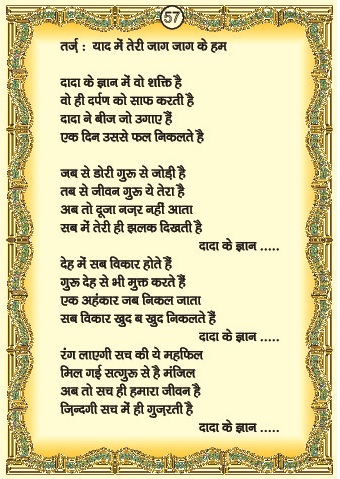 57
तर्ज़ : याद में तेरी जाग जाग के हम
दादा के ज्ञान में वो शक्ति है
वो ही दर्पण को साफ करती है
दादा ने बीज जो उगाए हैं
एक दिन उससे फल निकलते हैं
जब से डोरी गुरू से जोड़ी है
तब से जीवन गुरू ये तेरा है
अब तो दूजा नज़र नहीं आता
सब में तेरी ही झलक दिखती है
दादा के ज्ञान .....
देह में सब विकार होते हैं
गुरू देह से भी मुक्त करते हैं
एक अहंकार जब निकल जाता
सब विकार खुद ब खुद निकलते हैं
दादा के ज्ञान .....
रंग लाएगी सच की ये महफिल
मिल गई सत्गुरू से है मंजिल
अब तो सच ही हमारा जीवन है
ज़िन्दगी सच में ही गुज़रती है
दादा के ज्ञान .....